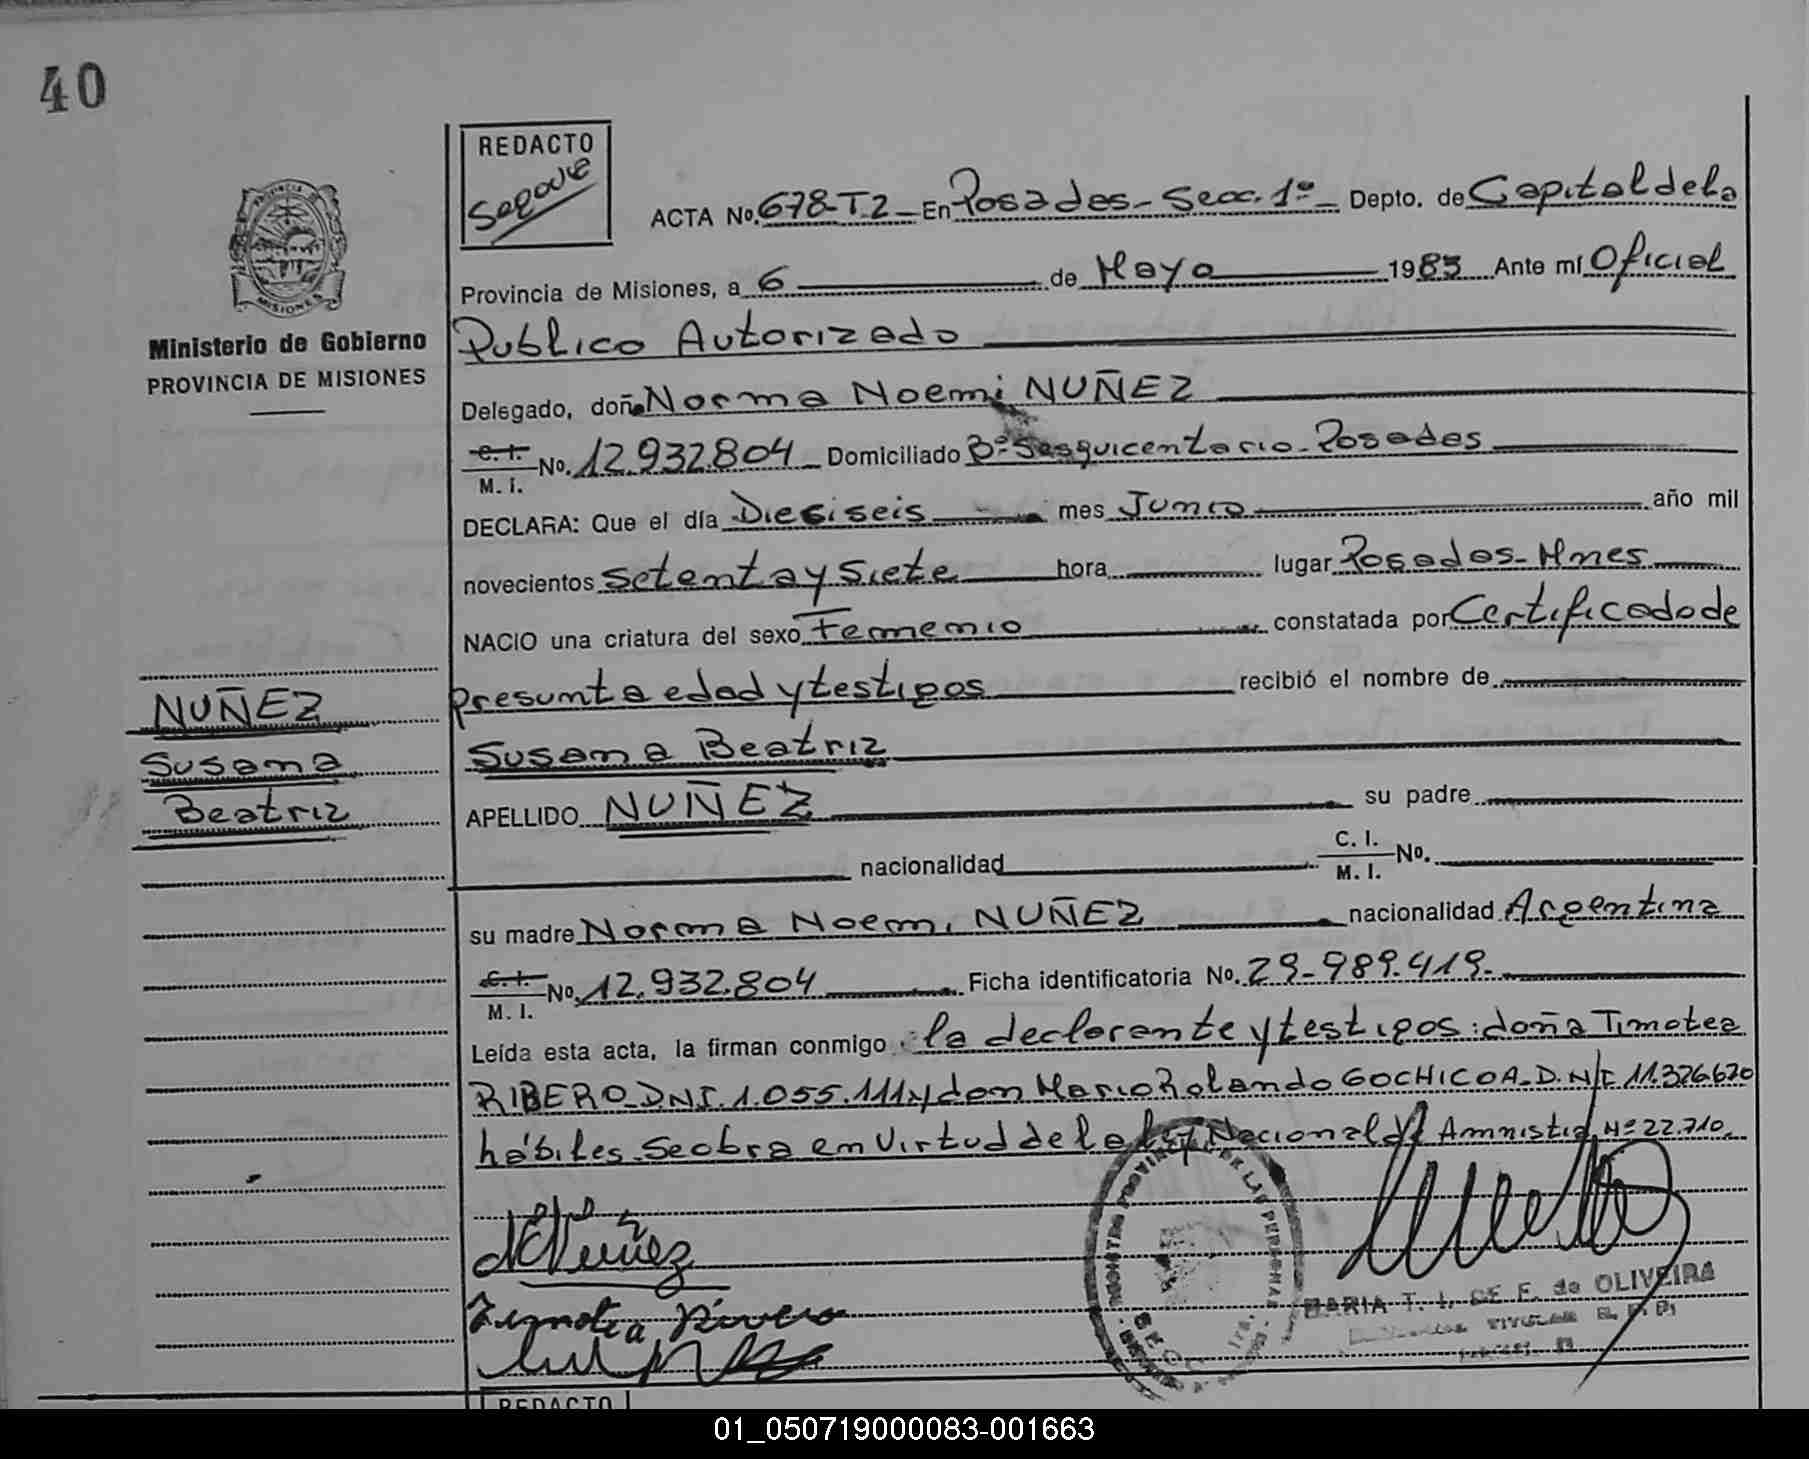 40
REDACTO
ACTA No. 678-T2 En Posadas - Secc. 1º Depto. de Capital de la
Provincia de Misiones, a 6 de Mayo 1983 Ante mí Oficial
MISIONES
Ministerio de Gobierno
PROVINCIA DE MISIONES
Publico Autorizado
Delegado, doña Norma Noemi NUÑEZ
C. I.
M. I. No. 12.932.804 Domiciliado Bº Sesquicentario - Posadas
DECLARA: Que el día Diesiseis mes Junio año mil
novecientos Setenta y Siete hora lugar Posadas - Mnes
NACIO una criatura del sexo Femenio constatada por Certificado de
presunta edad y testigos recibió el nombre de
NUÑEZ
Susana
Beatriz
Susana Beatriz
APELLIDO NUÑEZ su padre
nacionalidad C. I.
M. I. No.
su madre Norma Noemi NUÑEZ nacionalidad Argentina
C. I.
M. I. No. 12.932.804 Ficha identificatoria No. 29-989.419-
Leída esta acta, la firman conmigo la declarante y testigos: doña Timotea
RIBERO - DNI. 1.055.111 y don Mario Rolando GOCHICOA - D.N.I 11.326.670
hábiles. Se obra en virtud de la Ley Nacional de Amnistia Nº 22.710
N Nuñez
Timotea Rivero
REGISTRO PROVINCIAL DE LAS PERSONAS
SECC. 1ra.
MARIA T. I. DE F. de OLIVEIRA
TITULAR R. P. P.
REDACTO
01_050719000083-001663